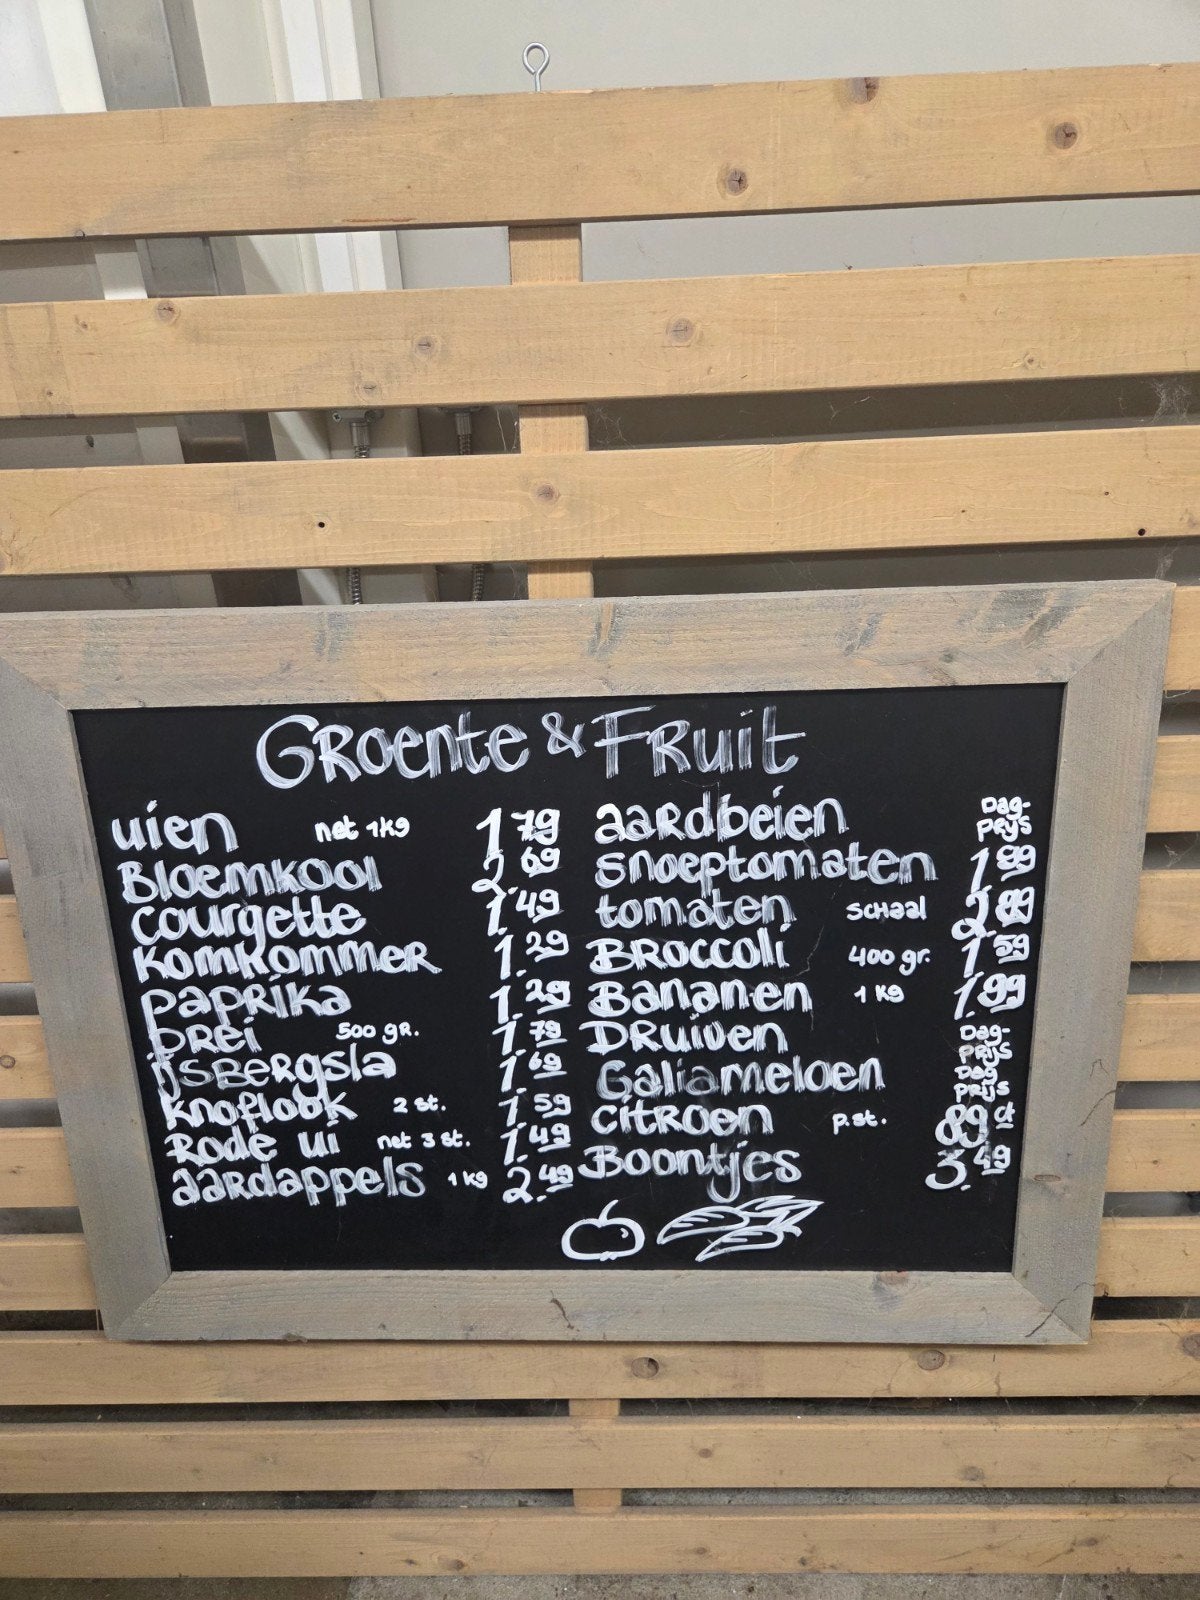 GROENTE & FRUIT
uien net 1kg 1.79
Bloemkool 2.69
courgette 1.49
komkommer 1.29
paprika 1.29
prei 500 gr. 1.79
ijsbergsla 1.69
knoflook 2 st. 1.59
Rode ui net 3 st. 1.49
aardappels 1 kg 2.49
aardbeien Dag-
prijs
snoeptomaten 1.99
tomaten schaal 2.89
Broccoli 400 gr. 1.59
Bananen 1 kg 1.99
Druiven Dag-
prijs
Galiameloen Dag
prijs
citroen p.st. 89 ct
Boontjes 3.49